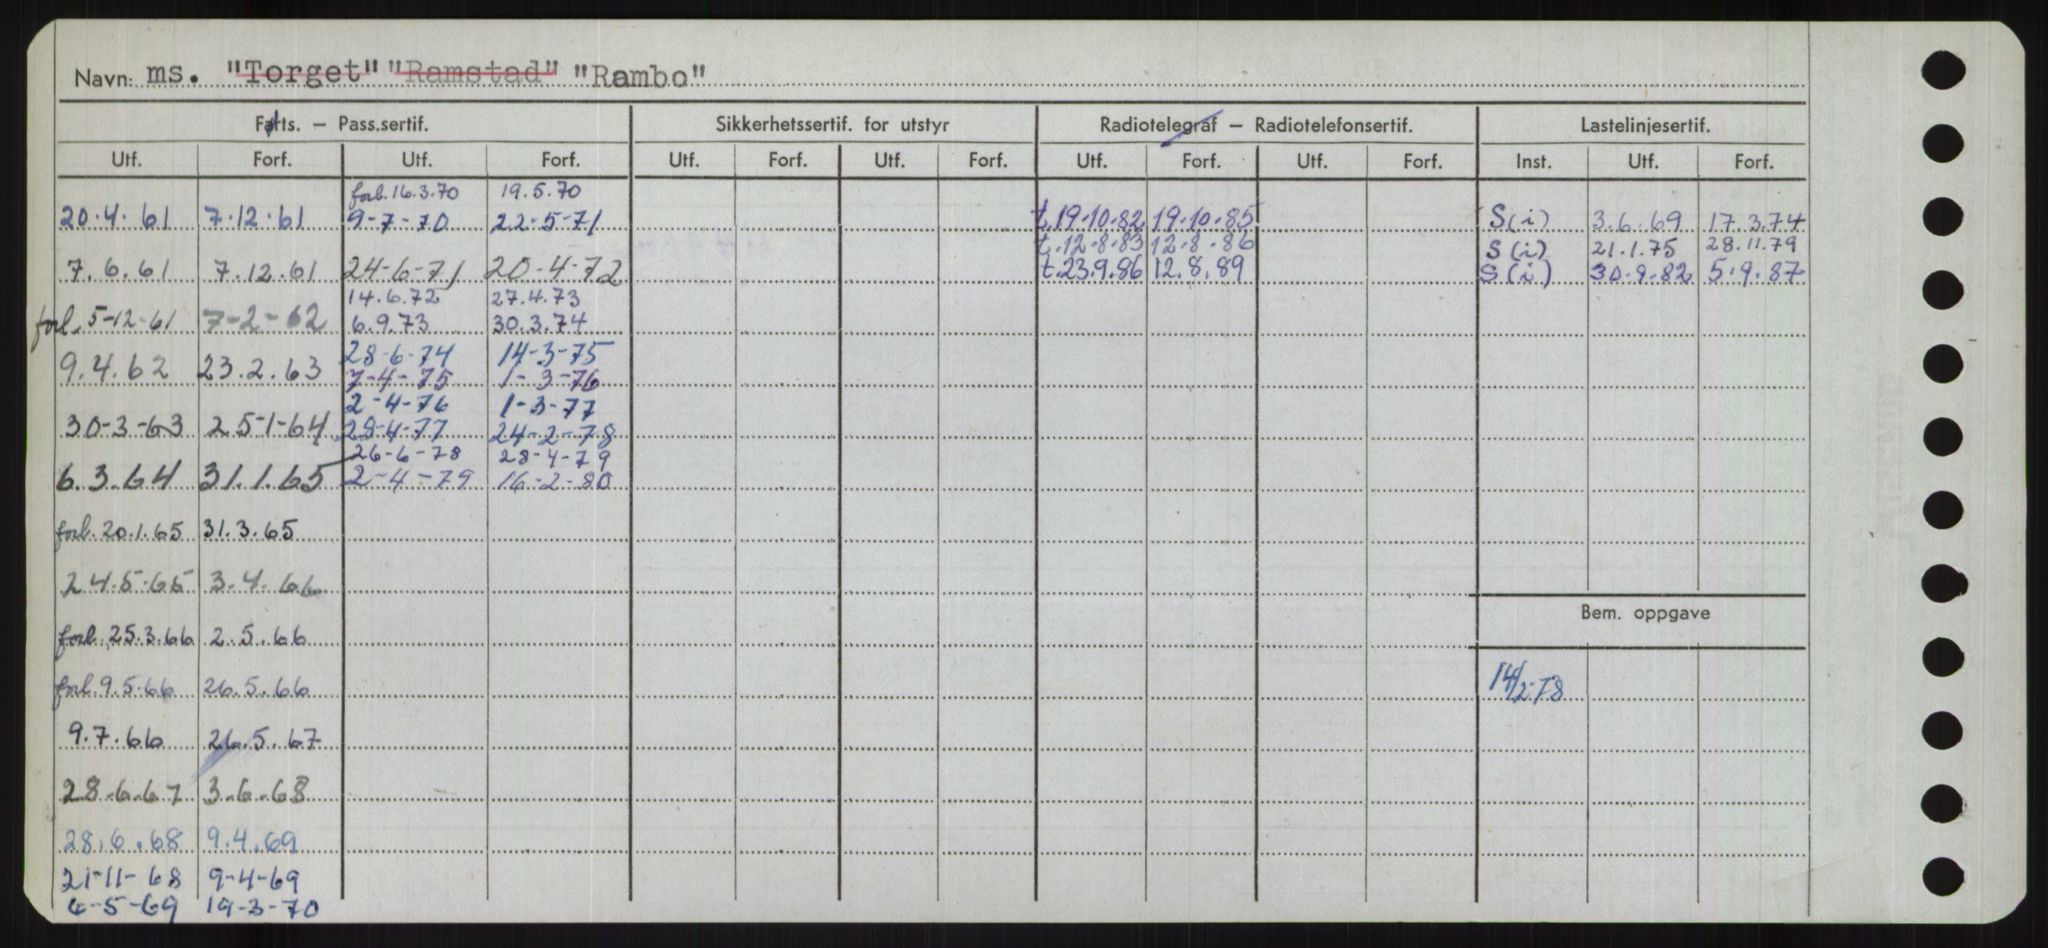 Navn: ms. "Torget" "Ramstad" "Rambo"
Farts. – Pass.sertif. Sikkerhetssertif. for utstyr Radiotelegraf – Radiotelefonsertif. Lastelinjesertif.
Utf. Forf. Utf. Forf. Utf. Forf. Utf. Forf. Utf. Forf. Utf. Forf. Inst. Utf. Forf.
forb. 16.3.70 19.5.70
20.4.61 7.12.61 9-7-70 22-5-71 t.19.10.82 19.10.85 S(i) 3.6.69 17.3.74
t.12.8.83 12.8.86 S(i) 21.1.75 28.11.79
7.6.61 7.12.61 24-6-71 20-4-72 t.23.9.86 12.8.89 S(i) 30.8.82 5.9.87
14.6.72 27.4.73
forl. 5-12-61 7-2-62 6.9.73 30.3.74
28-6-74 14-3-75
9.4.62 23.2.63 7-4-75 1-3-76
2-4-76 1-3-77
30-3-63 25-1-64 29-4-77 24-2-78
26-6-78 28-4-79
6.3.64 31.1.65 2-4-79 16-2-80
forb. 20.1.65 31.3.65
24.5.65 3.4.66
Bem. oppgave
forb. 25.3.66 2.5.66
forl. 9.5.66 26.5.66 14/2-78
9.7.66 26.5.67
28.6.67 3.6.68
28.6.68 9.4.69
21-11-68 9-4-69
6-5-69 19-3-70